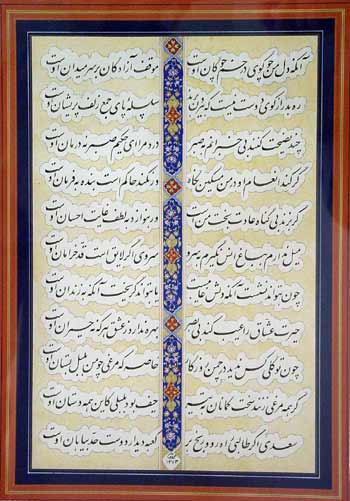 آنکه دل من چو گوی در خم چوگان اوست موقف آزادگان بر سر میدان اوست
ره بدر از کوی دوست نیست که بیرون برند سلسله پای جمع زلف پریشان اوست
چند نصیحت کنند بی خبرانم به صبر درد مرا ای حکیم صبر نه درمان اوست
گر کند انعام او در من مسکین نگاه ور نکند حاکم است بنده به فرمان اوست
گر بزند بی گناه عادت بخت من است ور بنوازد به لطف غایت احسان اوست
میل ندارم به باغ انس نگیرم به سرو سروی اگر لایق است قد خرامان اوست
چون بتواند نشست آنکه دلش غایب است یا بتواند گریخت آنکه به زندان اوست
حیرت عشاق را عیب کند بی بصر بهره ندارد ز عیش هر که نه حیران اوست
چون تو گلی کس ندید در چمن روزگار خاصه که مرغی چو من بلبل بستان اوست
گر همه مرغی زنند سخت کمانان به تیر حیف بود بلبلی کاین همه دستان اوست
سعدی اگر طالبی راه رو و رنج بر کعبه دیدار دوست بیابان اوست